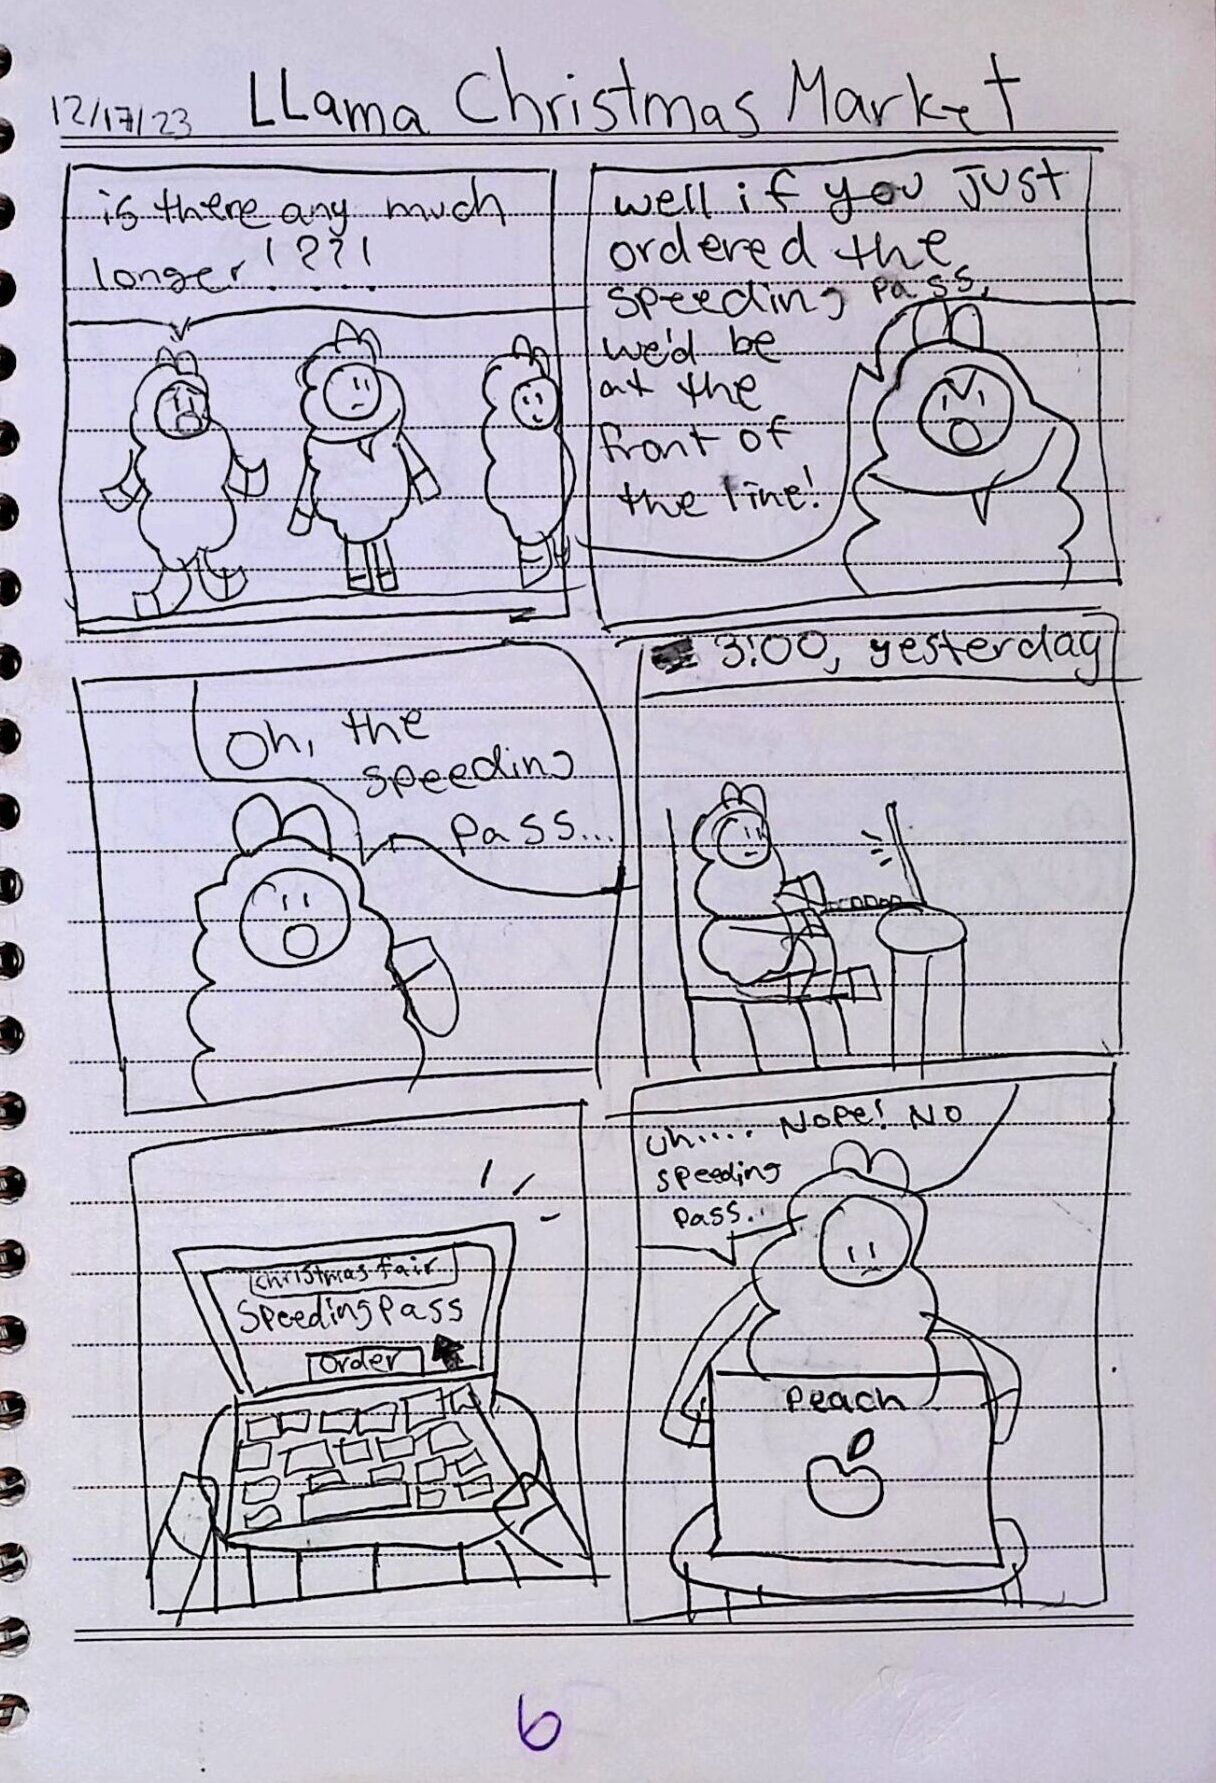 12/17/23 LLama Christmas Market
is there any much
longer!??!
well if you Just
ordered the
speeding pass,
we'd be
at the
front of
the line!
Oh, the
speeding
pass...
3:00, yesterday
Christmas fair
Speeding Pass
Order
uh.... Nope! No
speeding
pass.
Peach
6